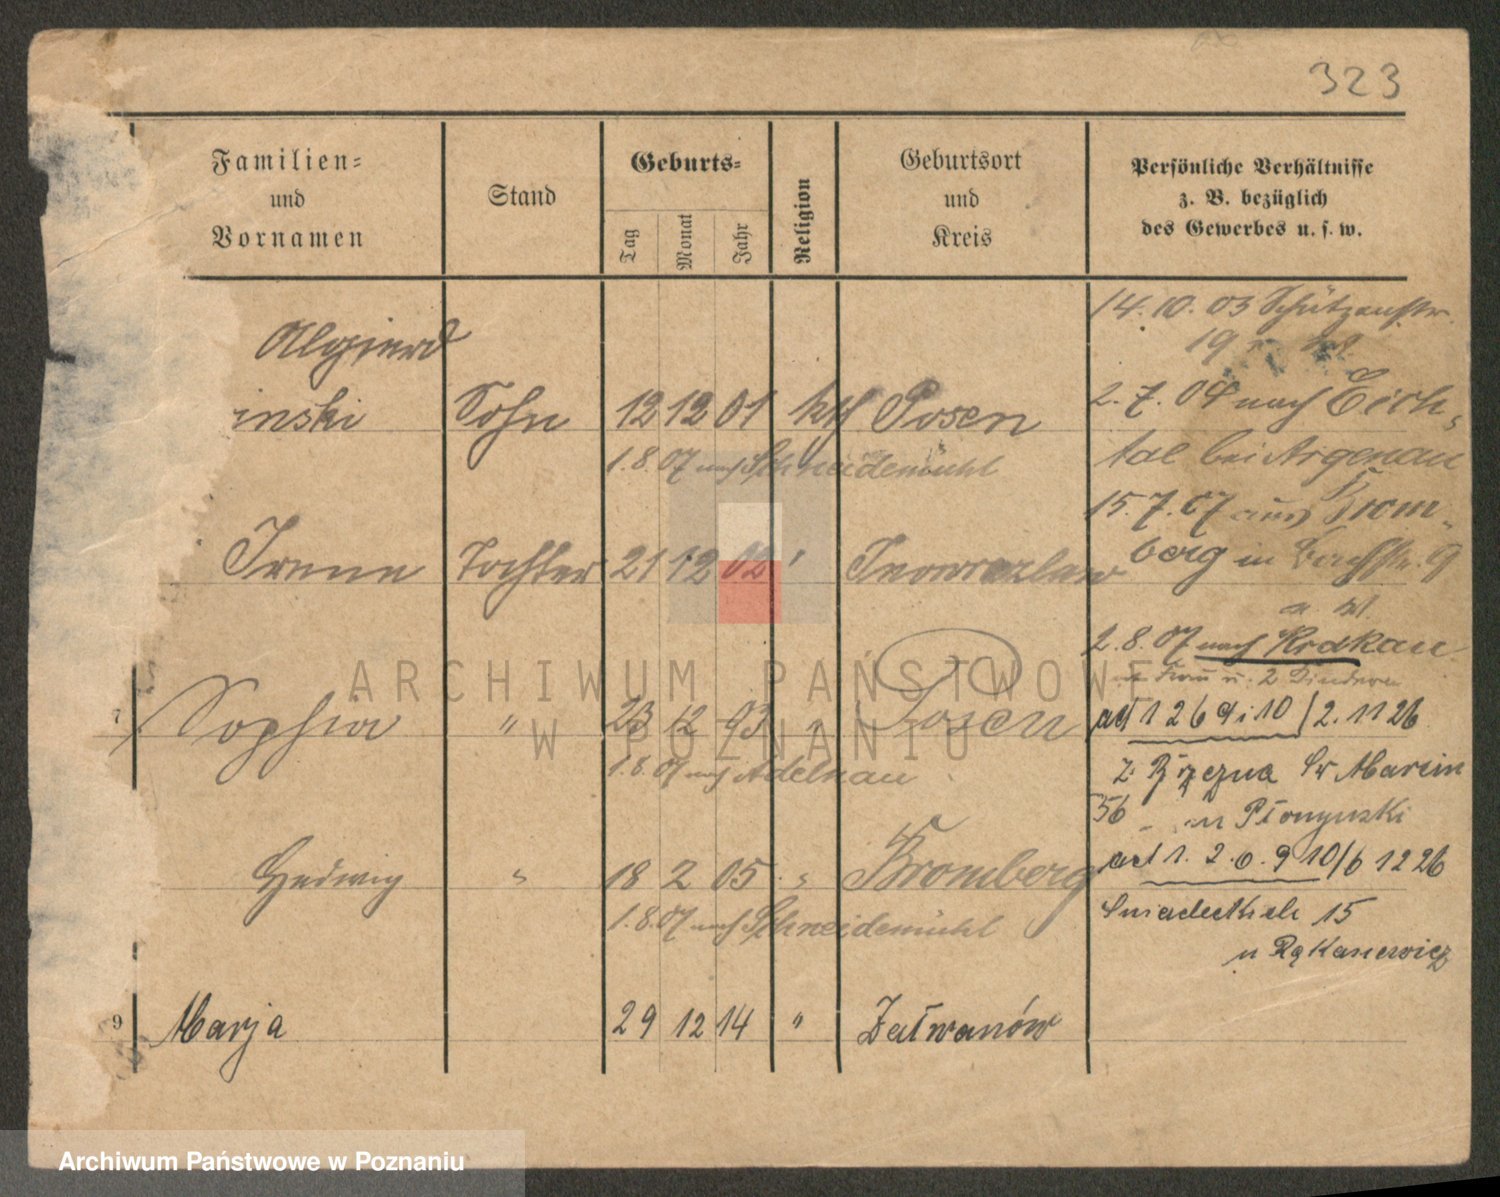 323
Familien-
und
Vornamen
Stand
Geburts-
Tag
Monat
Jahr
Religion
Geburtsort
und
Kreis
Persönliche Verhältnisse
z. B. bezüglich
des Gewerbes u. s. w.
14.10.03 Schützenstr.
19
Olgierd
inski Sohn 12 12 01 kth Posen
2.7.04 nach Eich-
tal bei Argenau
1.8.07 nach Schneidemühl
15.7.07 aus Brom-
berg in
Irene Tochter 21 12 02 " Inowrazlaw
2.8.07 nach Krakau
Frau u. 2 Kindern
7 Sophia " 23 12 03 " Posen
art 1 2 6 9 i 10 / 2.11 26
1.8.07 nach Adelnau
Marcin
56
art 1. 2. 6. 9 10/6 12 26
Hedwig " 18 2 05 " Bromberg
1.8.07 nach Schneidemühl
Sniadeckich 15
9 Marja 29 12 14 " Zatwanów
ARCHIWUM PAŃSTWOWE
W POZNANIU
Archiwum Państwowe w Poznaniu